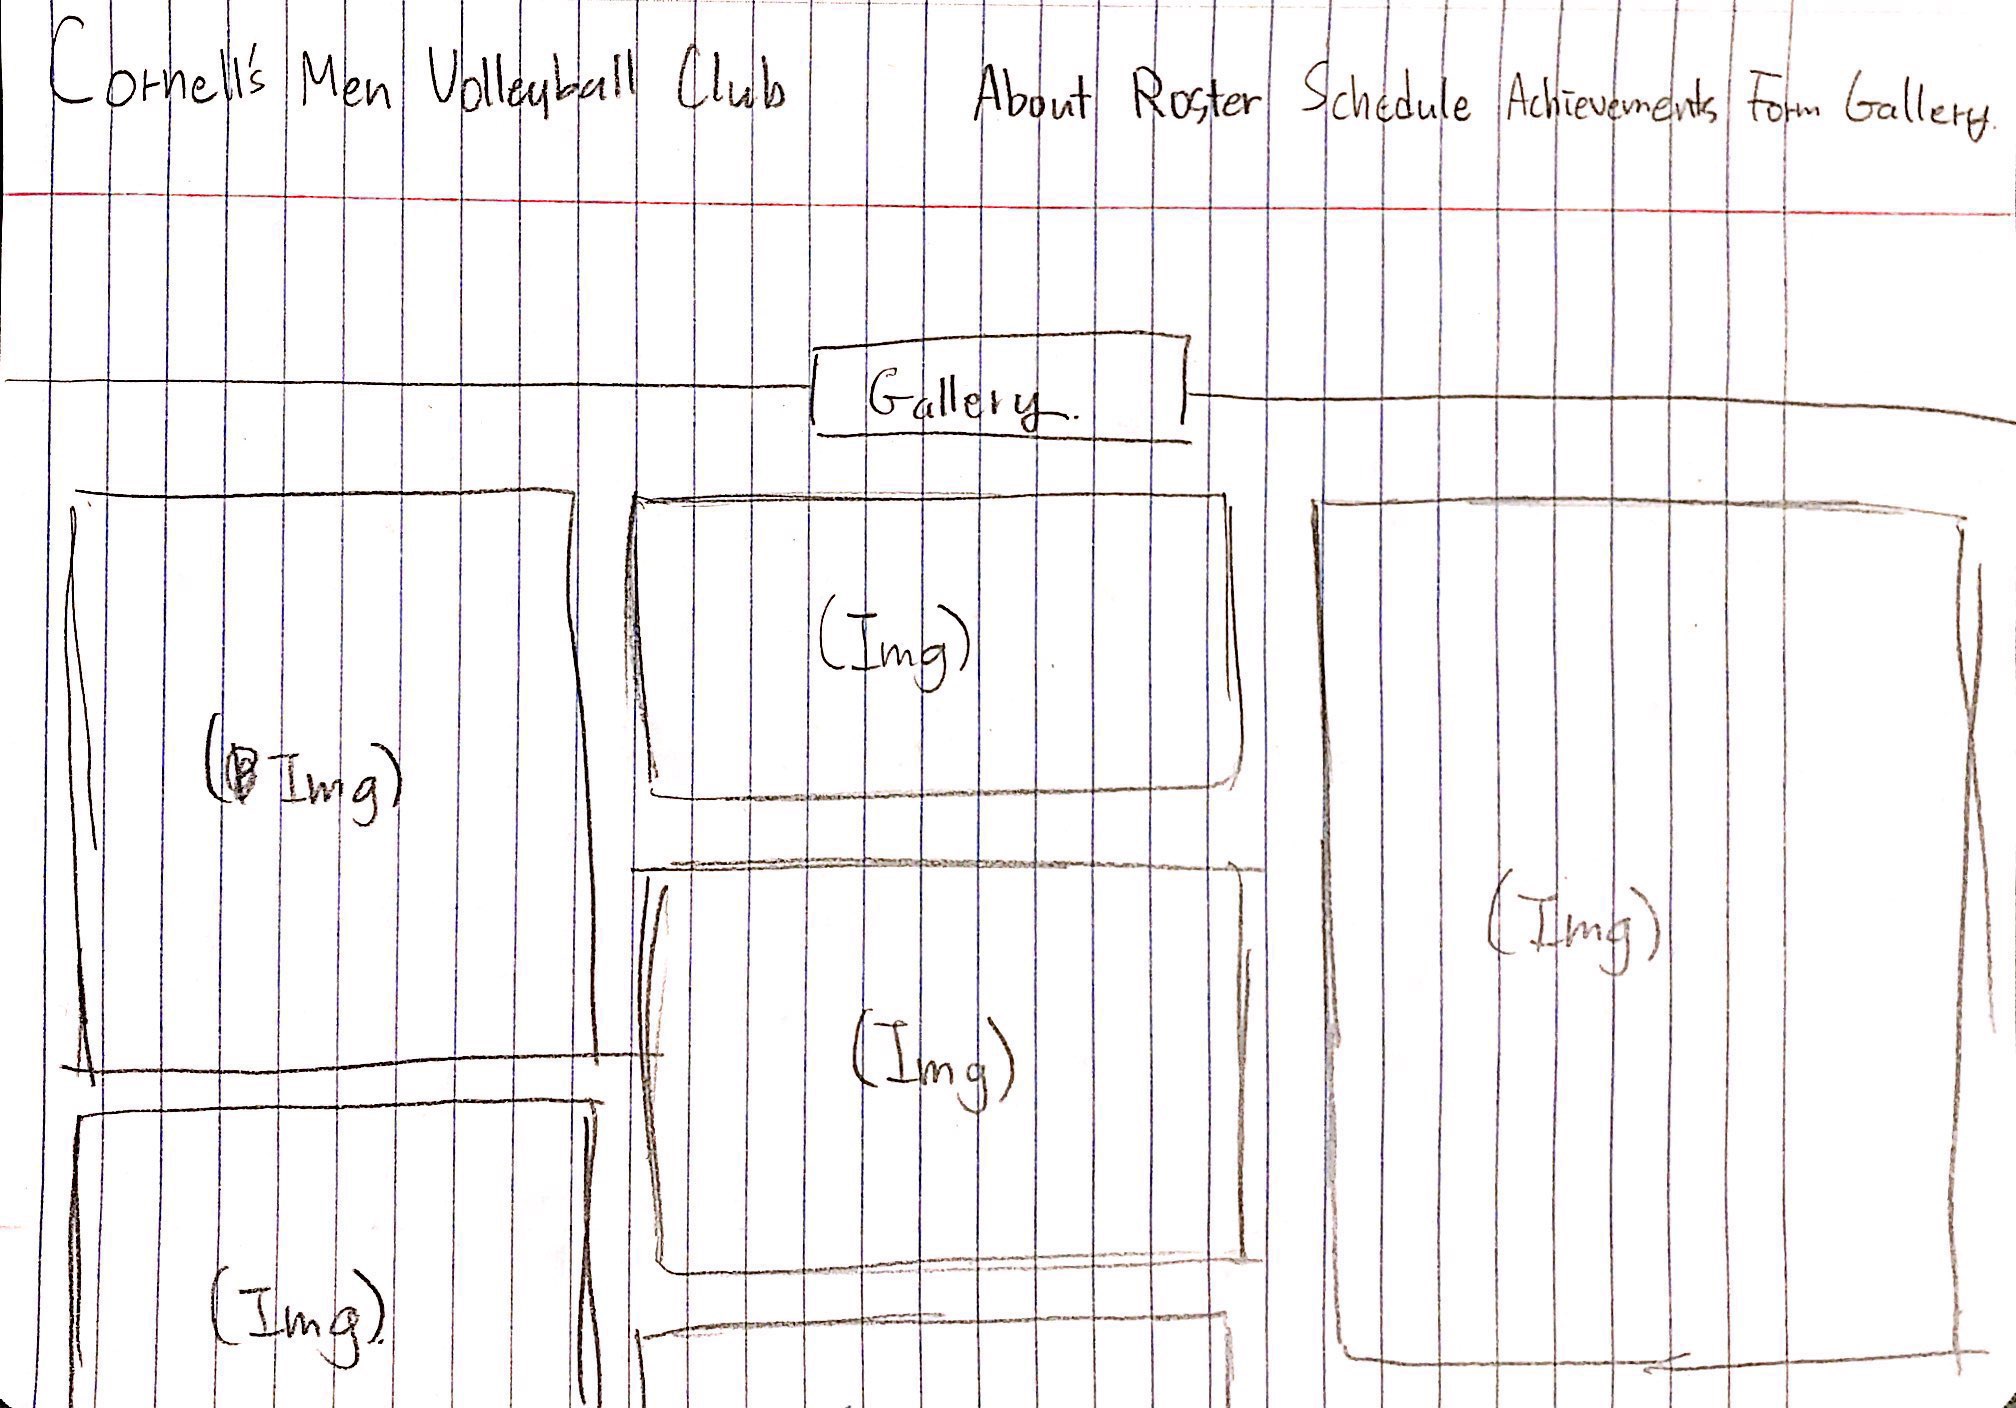 Cornell's Men Volleyball Club About Roster Schedule Achievements Form Gallery.
Gallery.
(Img)
(Img)
(Img)
(Img)
(Img).